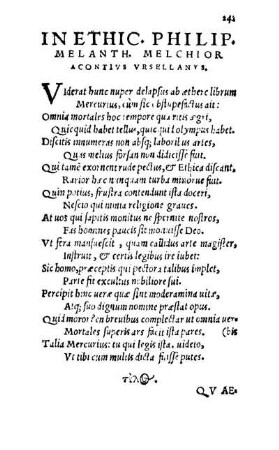 242
IN ETHIC. PHILIP.
MELANTH. MELCHIOR
ACONTIVS VRSELLANVS.
Viderat hunc nuper delapsus ab æthere librum
Mercurius, cùm sic obstupefactus ait:
Omnia mortales hoc tempore quæritis ægri,
Quicquid habet tellus, quicquid olympus habet.
Discitis innumeras non absq; laboribus artes,
Quis melius forsan non didicisse fuit.
Qui tamē exonerent rude pectus, & Ethica discant,
Rarior hæc nunquam turba minorue fuit.
Quin potius, frustra contendunt ista doceri,
Nescio qui nimia religione graues.
At uos qui sapitis monitus ne spernite nostros,
Fas homines paucis sit monuisse Deo.
Vt fera mansuescit, quam callidus arte magister,
Instruit, & certis legibus ire iubet:
Sic homo, præceptis qui pectora talibus implet,
Parte fit excultus nobiliore sui.
Percipit hinc ueræ quæ sint moderamina uitæ,
Atq; suo dignum nomine præstat opus.
Quid moror? en breuibus complectar ut omnia uer-
Mortales superis ars facit ista pares. (bis
Talia Mercurius: tu qui legis ista, uideto,
Vt tibi cum multis dicta fuisse putes.
QV AE-